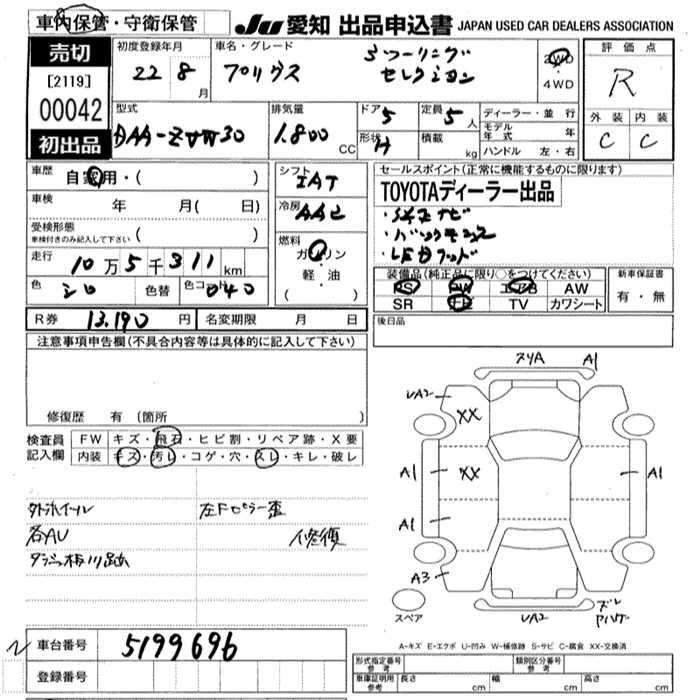 車内保管・守衛保管
JU 愛知 出品申込書 JAPAN USED CAR DEALERS ASSOCIATION
売切
[2119]
00042
初出品
初度登録年月
22 8 月
車名・グレード
プリウス
Sツーリング
セレクション
2WD
・
4WD
評価点
R
外装 内装
C C
型式
DAA-ZVW30
排気量
1.800 CC
ドア 5
形状 H
定員 5 人
積載 kg
ディーラー・並行
モデル年式 年
ハンドル 左・右
車歴
自家用・( )
車検
年 月( 日)
受検形態
車検付きのみ記入して下さい ( )
走行
10万5千311km
色 シロ 色替 色コード 040
シフト
IAT
冷房
AAC
燃料
ガソリン
・
軽・油
( )
セールスポイント(正常に機能するものに限ります)
TOYOTAディーラー出品
・純正ナビ
・バックモニター
・LEDヘッド
装備品(純正品に限り○をつけてください)
PS PW エアB AW
SR ナビ TV カワシート
新車保証書
有・無
R券 13.190 円 名変期限 月 日
後日品
注意事項申告欄(不具合内容等は具体的に記入して下さい)
修復歴 有 (箇所 )
検査員 記入欄
FW キズ・飛石・ヒビ割・リペア跡・X要
内装 キズ・汚レ・コゲ・穴・スレ・キレ・破レ
外ホイール 左Fピラー歪
各AU 修復
車台番号 5199696
登録番号
スペア
XX
XX
A1
A1
A1
A1
A3
UA2
UA2
A-キズ E-エクボ U-凹み W-補修跡 S-サビ C-腐食 XX-交換済
形式指定番号 参考
類別区分番号 参考
車庫証明用 参考 長さ cm 幅 cm 高さ cm